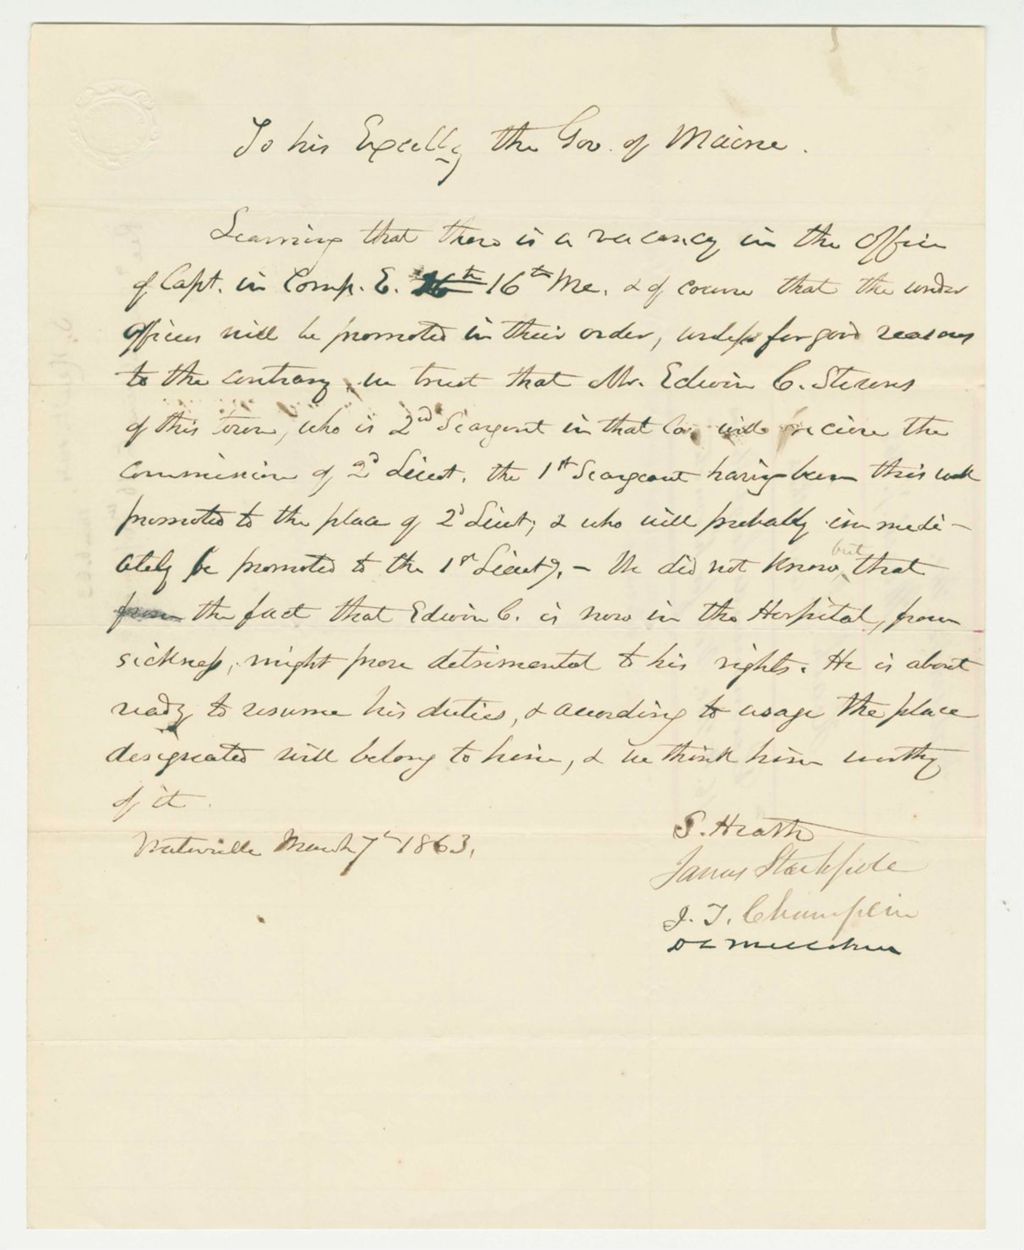 To his Excelly the Gov. of Maine.
Learning that there is a vacancy in the office
of Capt. in Comp. E. 16th 16th Me. & of course that the under
officers will be promoted in their order, unless for good reasons
to the contrary, we trust that Mr. Edwin C. Stevens
of this town, who is 2nd Seargent in that Co. will recieve the
commission of 2d Lieut. the 1st Seargeant having been this week
promoted to the place of 2d Lieut, & who will probably immedi-
ately be promoted to the 1st Lieuty. - We did not know but that
from the fact that Edwin C. is now in the Hospital, from
sickness, might prove detrimental to his rights. He is about
ready to resume his duties, & according to usage the place
designated will belong to him, & we think him worthy
of it.
Waterville March 7th 1863.
S. Heath
James Stackpole
J. T. Champlin